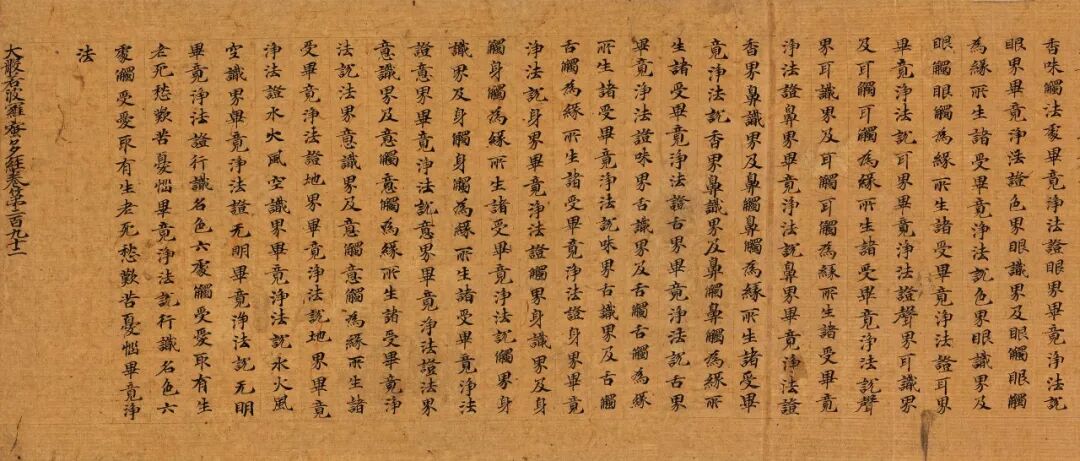 香味觸法處畢竟淨法證眼界畢竟淨法說
眼界畢竟淨法證色界眼識界及眼觸眼觸
為緣所生諸受畢竟淨法說色界眼識界及
眼觸眼觸為緣所生諸受畢竟淨法證耳界
畢竟淨法說耳界畢竟淨法證聲界耳識界
及耳觸耳觸為緣所生諸受畢竟淨法說聲
界耳識界及耳觸耳觸為緣所生諸受畢竟
淨法證鼻界畢竟淨法說鼻界畢竟淨法證
香界鼻識界及鼻觸鼻觸為緣所生諸受畢
竟淨法說香界鼻識界及鼻觸鼻觸為緣所
生諸受畢竟淨法證舌界畢竟淨法說舌界
畢竟淨法證味界舌識界及舌觸舌觸為緣
所生諸受畢竟淨法說味界舌識界及舌觸
舌觸為緣所生諸受畢竟淨法證身界畢竟
淨法說身界畢竟淨法證觸界身識界及身
觸身觸為緣所生諸受畢竟淨法說觸界身
識界及身觸身觸為緣所生諸受畢竟淨法
證意界畢竟淨法說意界畢竟淨法證法界
意識界及意觸意觸為緣所生諸受畢竟淨
法說法界意識界及意觸意觸為緣所生諸
受畢竟淨法證地界畢竟淨法說地界畢竟
淨法證水火風空識界畢竟淨法說水火風
空識界畢竟淨法證无明畢竟淨法說无明
畢竟淨法證行識名色六處觸受愛取有生
老死愁歎苦憂惱畢竟淨法說行識名色六
處觸受愛取有生老死愁歎苦憂惱畢竟淨
法
大般若波羅蜜多經卷第二百九十二